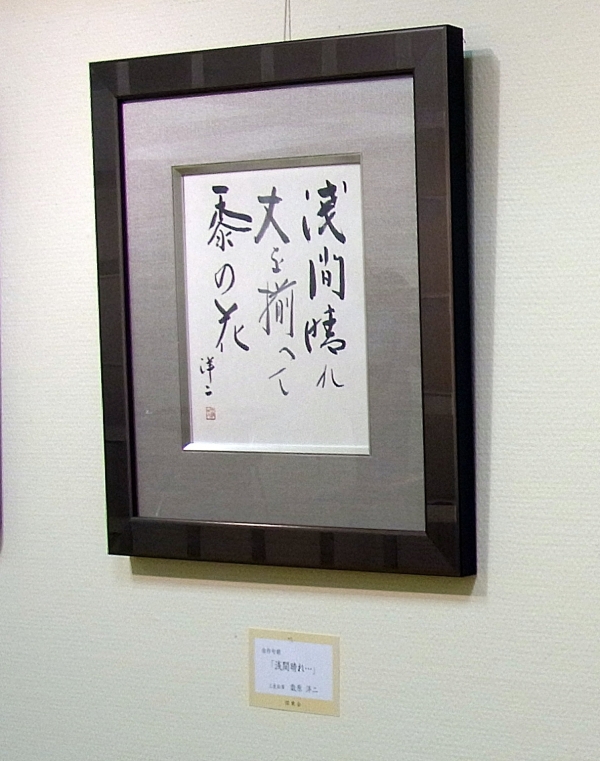 浅間晴れ
丈を揃へて
黍の花
洋二
「浅間晴れ…」
洋二